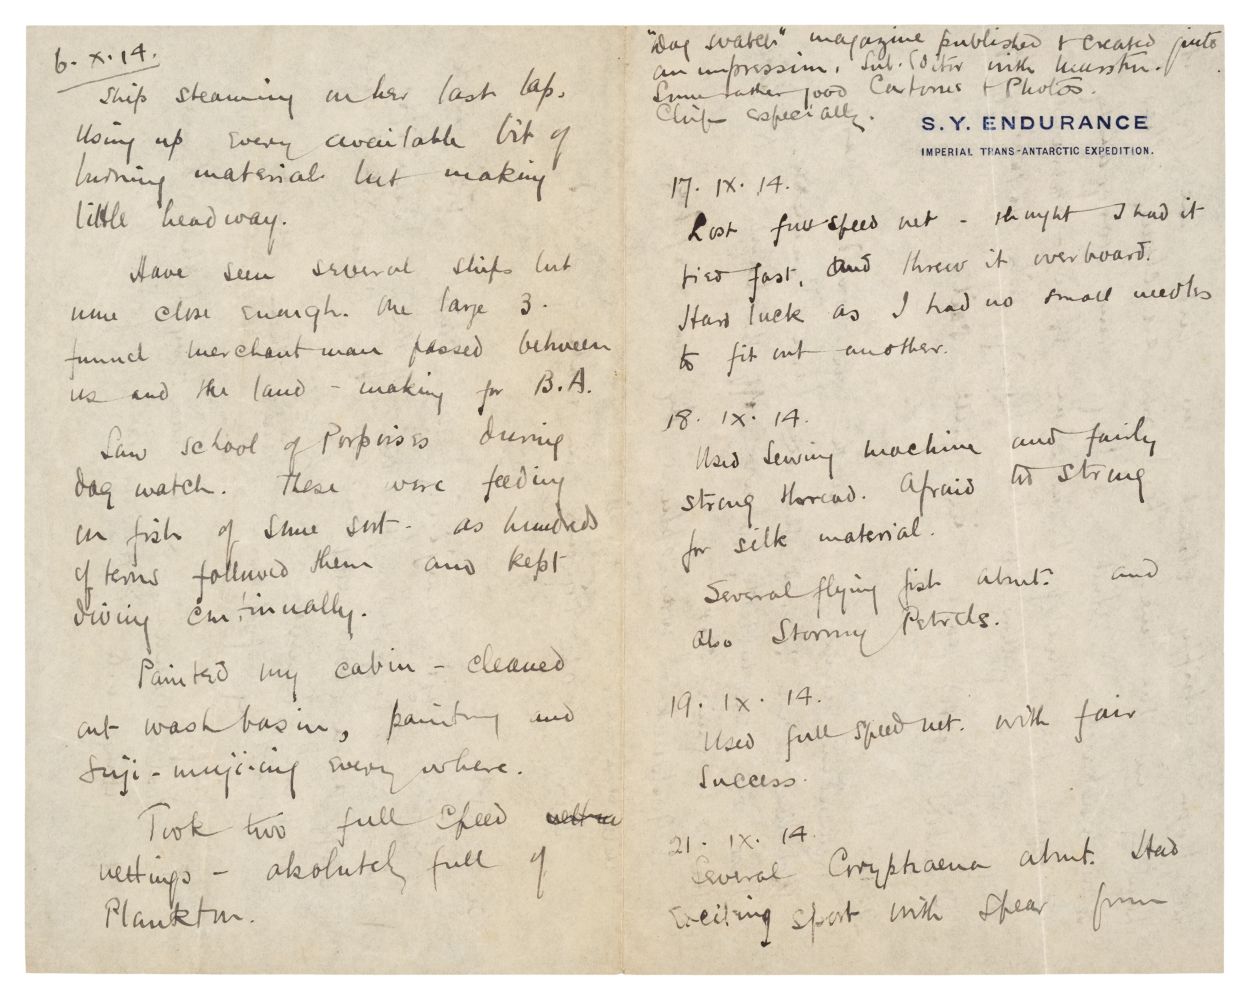 6. X. 14.
Ship steaming on her last lap.
Using up every available bit of
burning material but making
little headway.
Have seen several ships but
none close enough. One large 3.
funnel merchantman passed between
us and the land - making for B.A.
Saw school of Porpoises during
dog watch. These were feeding
on fish of some sort - as hundreds
of terns followed them and kept
diving continually.
Painted my cabin - cleaned
out wash basin, painting and
Suji-muji-ing every where.
Took two full speed
nettings - absolutely full of
Plankton.
"Dog Watch" magazine published & created quite
an impression. Sub. Editor with Marston.
Some rather good Cartoons & Photos.
especially.
S.Y. ENDURANCE
IMPERIAL TRANS-ANTARCTIC EXPEDITION.
17. IX. 14.
Lost full speed net - thought I had it
tied fast, and threw it overboard.
Hard luck as I had no small needles
to fit out another.
18. IX. 14.
Used Sewing machine and fairly
strong thread. Afraid too strong
for silk material.
Several flying fish about. and
also Stormy Petrels.
19. IX. 14.
Used full speed net. with fair
Success.
21. IX. 14
Several Coryphaena about. Had
exciting sport with spear from